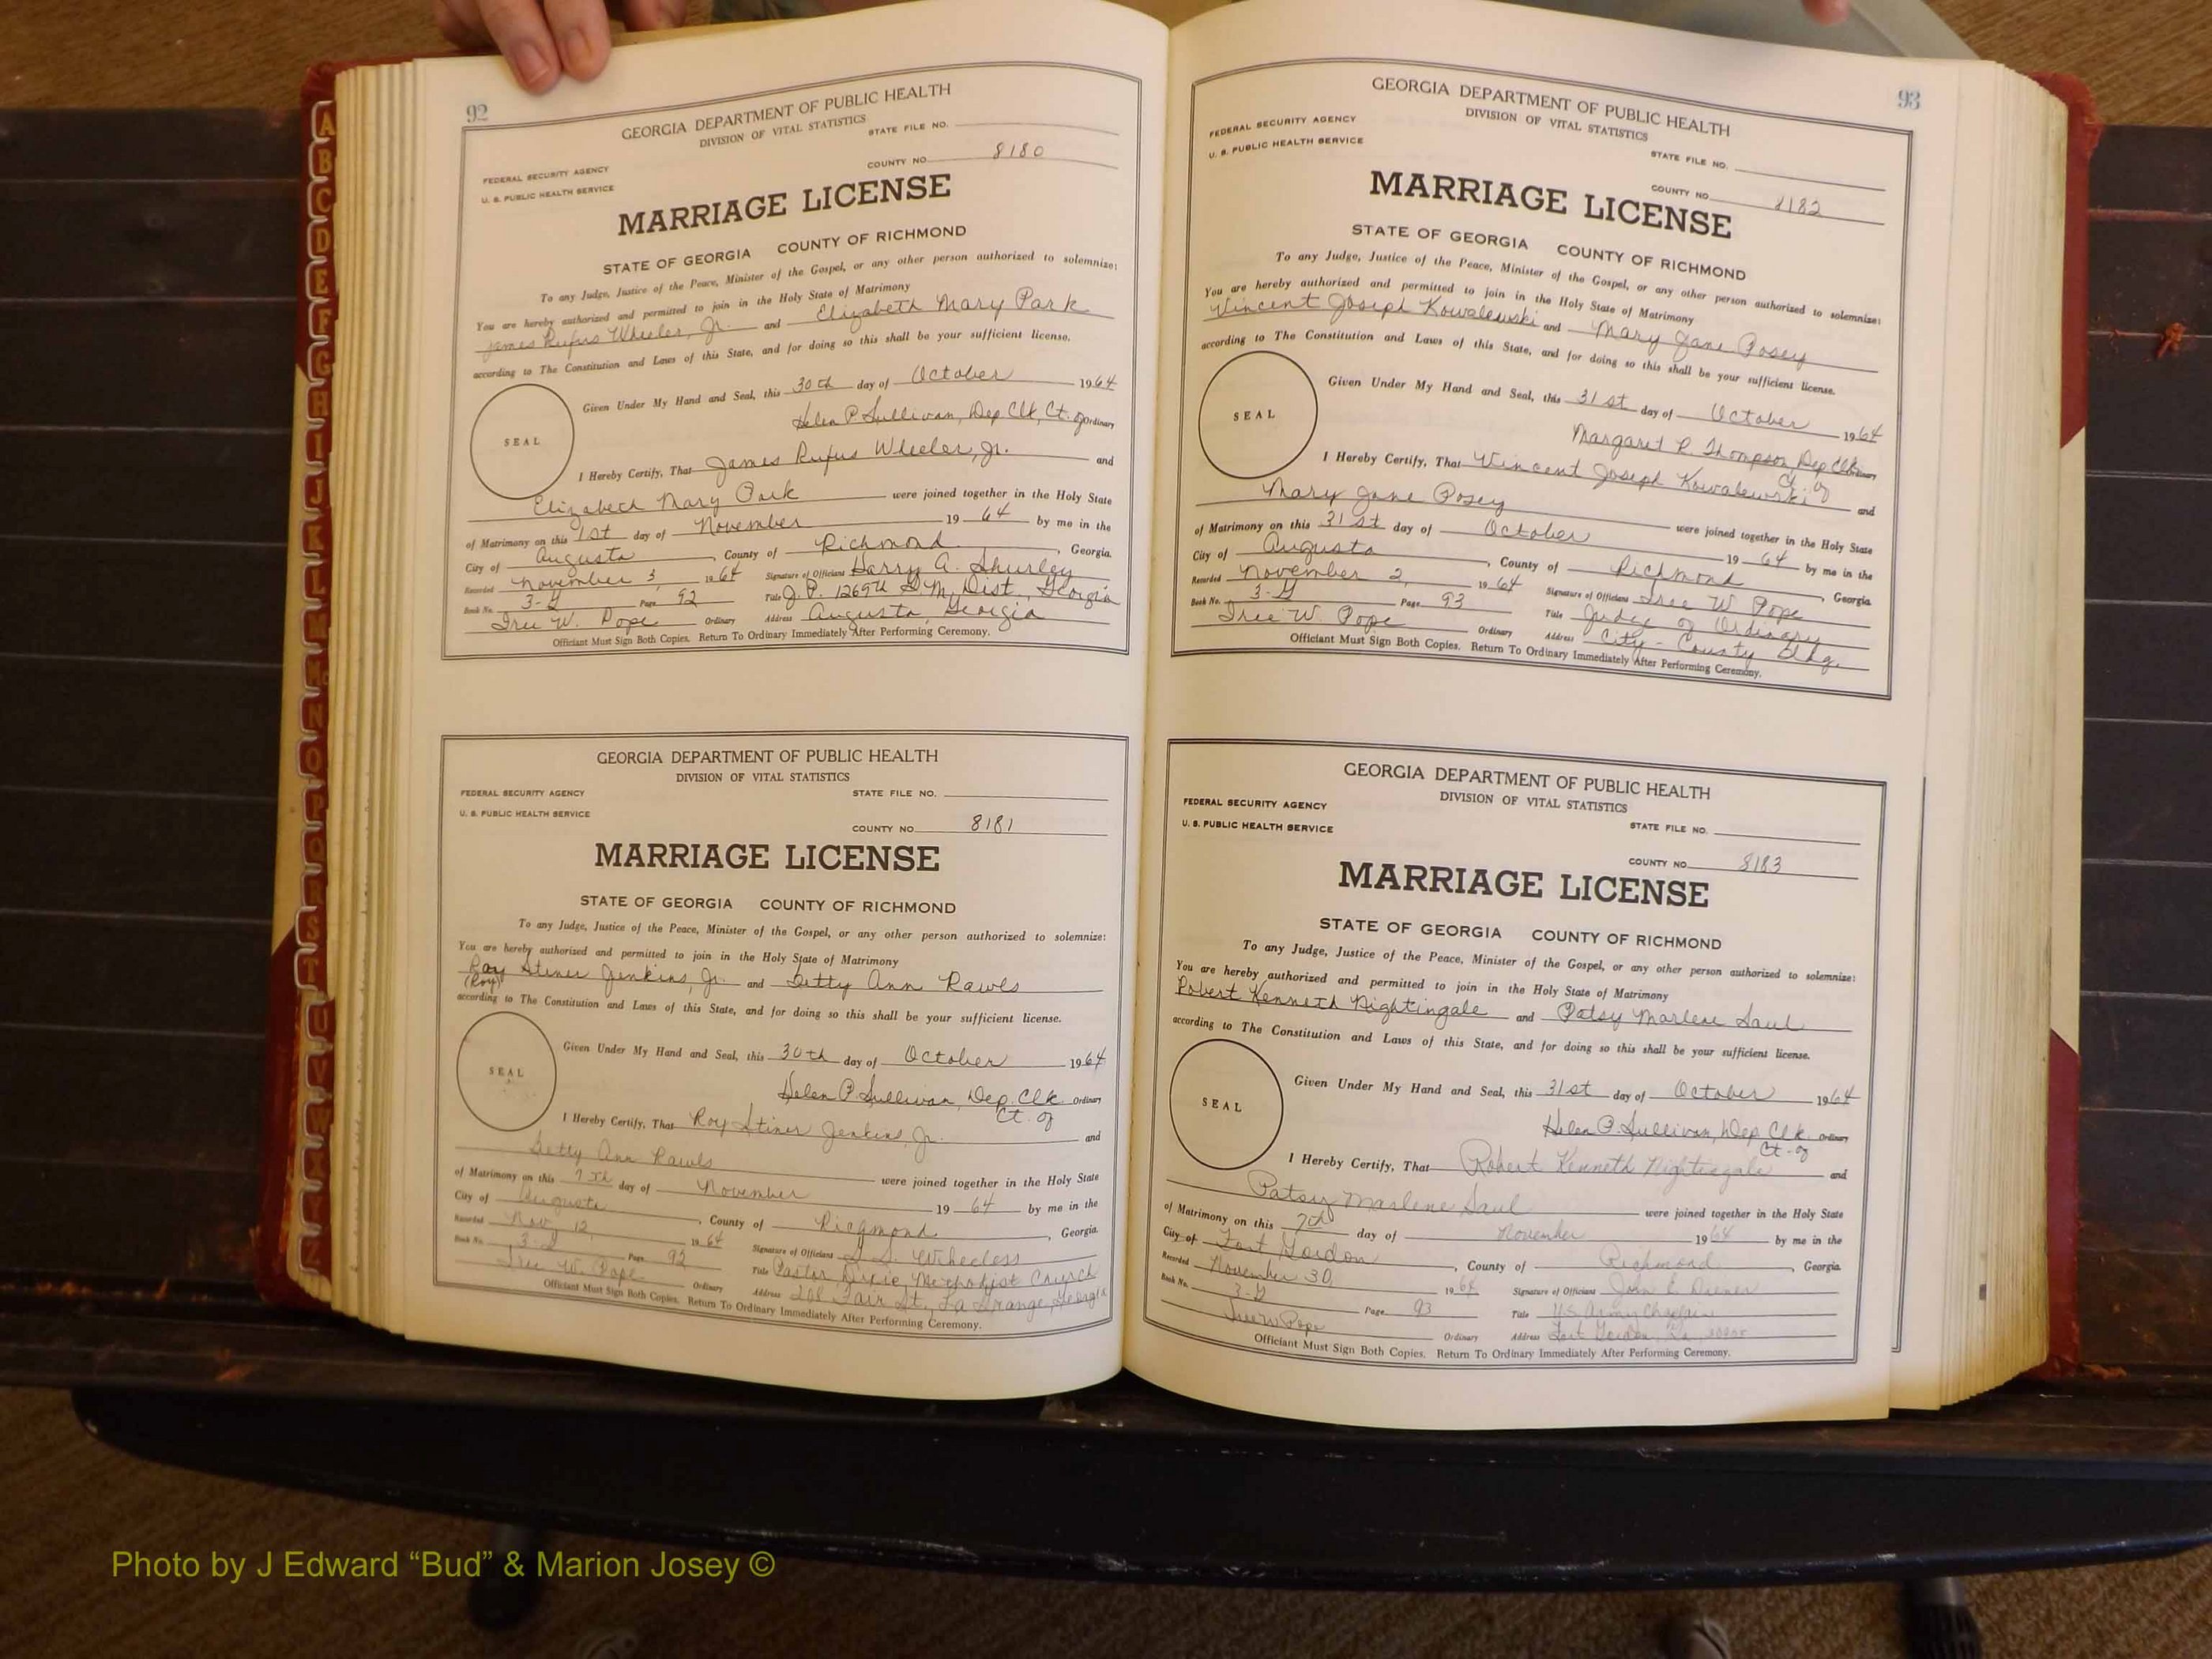 92
GEORGIA DEPARTMENT OF PUBLIC HEALTH
DIVISION OF VITAL STATISTICS
STATE FILE NO.
FEDERAL SECURITY AGENCY
COUNTY NO. 8180
U. S. PUBLIC HEALTH SERVICE
MARRIAGE LICENSE
STATE OF GEORGIA COUNTY OF RICHMOND
To any Judge, Justice of the Peace, Minister of the Gospel, or any other person authorized to solemnize:
You are hereby authorized and permitted to join in the Holy State of Matrimony
James Rufus Wheeler, Jr. and Elizabeth Mary Park
according to The Constitution and Laws of this State, and for doing so this shall be your sufficient license.
Given Under My Hand and Seal, this 30th day of October 1964
SEAL
Helen P. Sullivan, Dep Clk, Ct. of Ordinary
I Hereby Certify, That James Rufus Wheeler, Jr. and
Elizabeth Mary Park were joined together in the Holy State
of Matrimony on this 1st day of November 19 64 by me in the
City of Augusta, County of Richmond, Georgia.
Recorded November 3, 1964 Signature of Officiant Harry A. Shurley
Book No. 3-G Page 92 Title J. P. 1269th G.M. Dist., Georgia
Iree W. Pope Ordinary Address Augusta, Georgia
Officiant Must Sign Both Copies. Return To Ordinary Immediately After Performing Ceremony.
GEORGIA DEPARTMENT OF PUBLIC HEALTH
DIVISION OF VITAL STATISTICS
FEDERAL SECURITY AGENCY
STATE FILE NO.
U. S. PUBLIC HEALTH SERVICE
COUNTY NO. 8181
MARRIAGE LICENSE
STATE OF GEORGIA COUNTY OF RICHMOND
To any Judge, Justice of the Peace, Minister of the Gospel, or any other person authorized to solemnize:
You are hereby authorized and permitted to join in the Holy State of Matrimony
Ray Stiner Jenkins, Jr. and Betty Ann Rawls
(Roy)
according to The Constitution and Laws of this State, and for doing so this shall be your sufficient license.
Given Under My Hand and Seal, this 30th day of October 1964
SEAL
Helen P. Sullivan, Dep. Clk. Ordinary
Ct. of
I Hereby Certify, That Roy Stiner Jenkins, Jr. and
Betty Ann Rawls were joined together in the Holy State
of Matrimony on this 7th day of November 19 64 by me in the
City of Augusta, County of Ricgmond, Georgia.
Recorded Nov. 12, 1964 Signature of Officiant Wheeless
Book No. 3-G Page 92 Title Pastor, Dixie Methodist Church
Iree W. Pope Ordinary Address 208 Fair St., La Grange, Georgia
Officiant Must Sign Both Copies. Return To Ordinary Immediately After Performing Ceremony.
93
GEORGIA DEPARTMENT OF PUBLIC HEALTH
DIVISION OF VITAL STATISTICS
FEDERAL SECURITY AGENCY
STATE FILE NO.
U. S. PUBLIC HEALTH SERVICE
COUNTY NO. 8182
MARRIAGE LICENSE
STATE OF GEORGIA COUNTY OF RICHMOND
To any Judge, Justice of the Peace, Minister of the Gospel, or any other person authorized to solemnize:
You are hereby authorized and permitted to join in the Holy State of Matrimony
Vincent Joseph Kowalewski and Mary Jane Posey
according to The Constitution and Laws of this State, and for doing so this shall be your sufficient license.
Given Under My Hand and Seal, this 31st day of October 1964
SEAL
Margaret R. Thompson, Dep Clk Ordinary
Ct of
I Hereby Certify, That Vincent Joseph Kowalewski and
Mary Jane Posey were joined together in the Holy State
of Matrimony on this 31st day of October 19 64 by me in the
City of Augusta, County of Richmond, Georgia.
Recorded November 2, 1964 Signature of Officiant Iree W. Pope
Book No. 3-G Page 93 Title Judge of Ordinary
Iree W. Pope Ordinary Address City-County Bldg.
Officiant Must Sign Both Copies. Return To Ordinary Immediately After Performing Ceremony.
GEORGIA DEPARTMENT OF PUBLIC HEALTH
DIVISION OF VITAL STATISTICS
FEDERAL SECURITY AGENCY
STATE FILE NO.
U. S. PUBLIC HEALTH SERVICE
COUNTY NO. 8183
MARRIAGE LICENSE
STATE OF GEORGIA COUNTY OF RICHMOND
To any Judge, Justice of the Peace, Minister of the Gospel, or any other person authorized to solemnize:
You are hereby authorized and permitted to join in the Holy State of Matrimony
Robert Kenneth Nightingale and Patsy Marlene Saul
according to The Constitution and Laws of this State, and for doing so this shall be your sufficient license.
Given Under My Hand and Seal, this 31st day of October 1964
SEAL
Helen P. Sullivan, Dep. Clk. Ordinary
Ct. of
I Hereby Certify, That Robert Kenneth Nightingale and
Patsy Marlene Saul were joined together in the Holy State
of Matrimony on this 7th day of November 1964 by me in the
City of Fort Gordon, County of Richmond, Georgia.
Recorded November 30, 1964 Signature of Officiant John E.
Book No. 3-G Page 93 Title US Army Chaplain
Iree W Pope Ordinary Address Fort Gordon, Ga
Officiant Must Sign Both Copies. Return To Ordinary Immediately After Performing Ceremony.
A
B
C
D
E
F
G
H
I
J
K
L
M
Mc
N
O
P
Q
R
S
T
U
V
W
X
Y
Z
Photo by J Edward “Bud” & Marion Josey ©